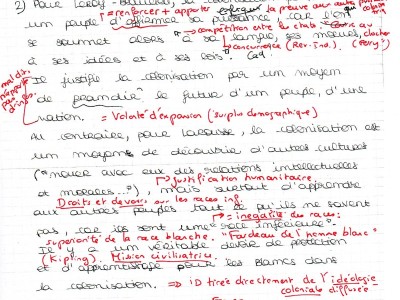 2) Pour Leroy-Beaulieu, la colonisation
= renforcer + apporter la preuve aux autres
un peuple d'affirmer sa puissance, car l'on
= compétition entre les états
se soumet alors à sa langue, ses moeurs,
concurrence (Rev. Ind.) (Ferry)
à ses idées et à ses lois.
mal dit
Il justifie la colonisation par un moyen
de grandir le futur d'un peuple, d'une
nation. = Volonté d'expansion (surplus démographique)
Au contraire, pour Larousse, la colonisation est
un moyen de découvrir d'autres cultures
("nouer avec eux des relations intellectuelles
justification humanitaire.
et morales...?"), mais surtout d'apprendre
Droits et devoirs sur les races inf.
aux autres peuples tout ce qu'ils ne savent
= inégalité des races:
pas, car ils sont une "race inférieure".
supériorité de la race blanche. "Fardeau de l'homme blanc"
Il y a un véritable devoir de protection
(Kipling). Mission civilisatrice
et d'apprentissage pour les blancs dans
la colonisation. ⇒ ID tirée directement de l'idéologie
coloniale diffusée